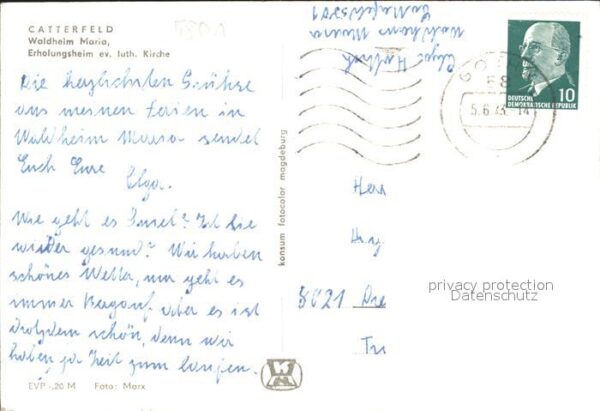 CATTERFELD
Waldheim Maria,
Erholungsheim ev. luth. Kirche
5801
Die herzlichsten Grühse
aus meinen Ferien in
Waldheim Maria sendet
Euch Eure
Olga.
Wie geht es Insel? Ist Sie
wieder gesund? Wir haben
schönes Wetter, nur geht es
immer Bergauf aber es ist
trotzdem schön, denn wir
haben ja Zeit zum laufen.
EVP -,20 M Foto: Marx
konsum fotocolor magdeburg
Olga
Waldheim Maria
5801
58
5.6.73.-14
DEUTSCHE
DEMOKRATISCHE REPUBLIK
10
Herr
8021 Dre
privacy protection
Datenschutz